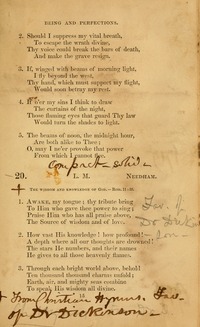 BEING AND PERFECTIONS.
2. Should I suppress my vital breath,
To escape the wrath divine,
Thy voice could break the bars of death,
And make the grave resign.
3. If, winged with beams of morning light,
I fly beyond the west,
Thy hand, which must support my flight,
Would soon betray my rest.
4. If o'er my sins I think to draw
The curtains of the night,
Those flaming eyes that guard Thy law
Would turn the shades to light.
5. The beams of noon, the midnight hour,
Are both alike to Thee;
O, may I ne'er provoke that power
From which I cannot flee.
compact - solid -
20. L. M. NEEDHAM.
THE WISDOM AND KNOWLEDGE OF GOD.
1. AWAKE, my tongue; thy tribute bring
To Him who gave thee power to sing;
Praise Him who has all praise above,
The Source of wisdom and of love.
2. How vast His knowledge! how profound!
A depth where all our thoughts are drowned!
The stars He numbers, and their names
He gives to all those heavenly flames.
3. Through each bright world above, behold
Ten thousand thousand charms unfold;
Earth, air, and mighty seas combine
To speak His wisdom all divine.
From Christian Hymns.
of Dr Dickinson.